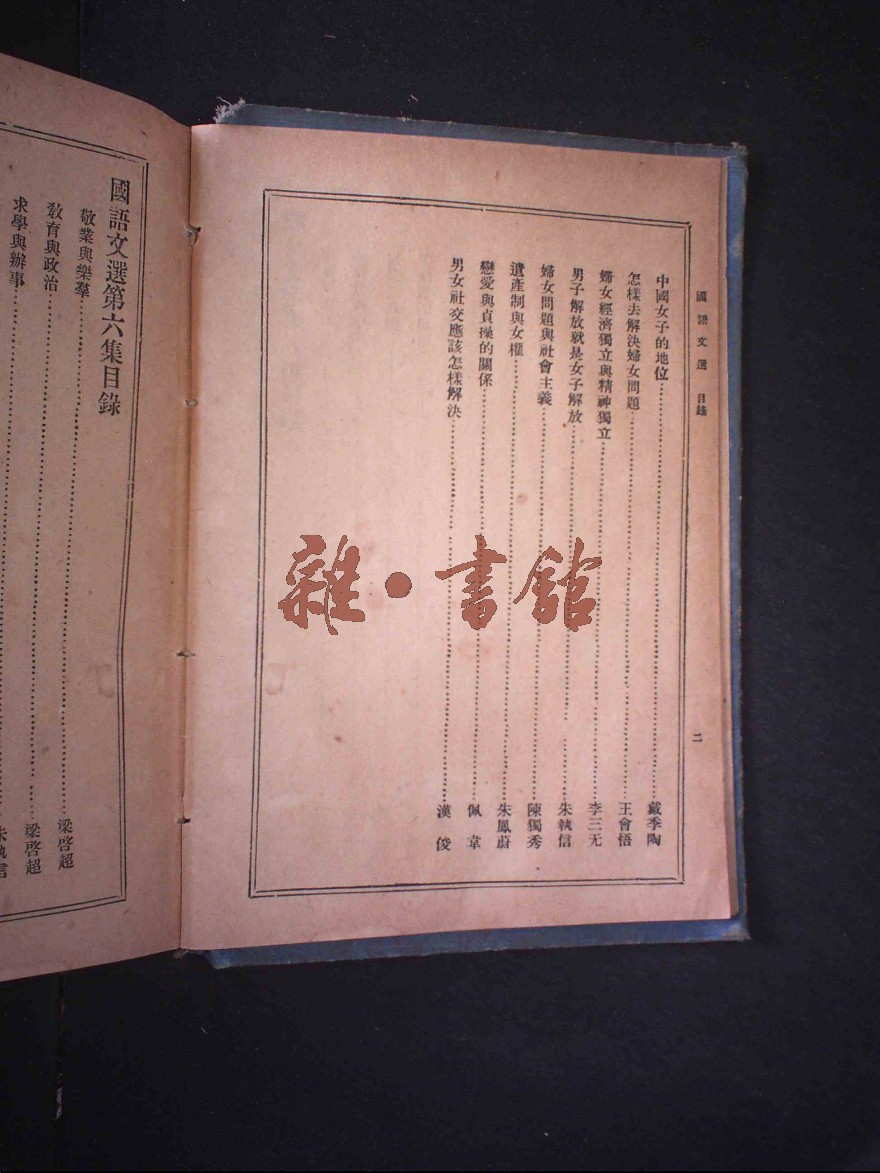 國語文選 目錄
二
中國女子的地位……戴季陶
怎樣去解決婦女問題……王會悟
婦女經濟獨立與精神獨立……李三无
男子解放就是女子解放……朱執信
婦女問題與社會主義……陳獨秀
遺產制與女權……朱鳳蔚
戀愛與貞操的關係……佩韋
男女社交應該怎樣解決……漢俊
國語文選第六集目錄
敬業與樂羣……梁啓超
教育與政治……梁啓超
求學與辦事……朱執信
雜·書館